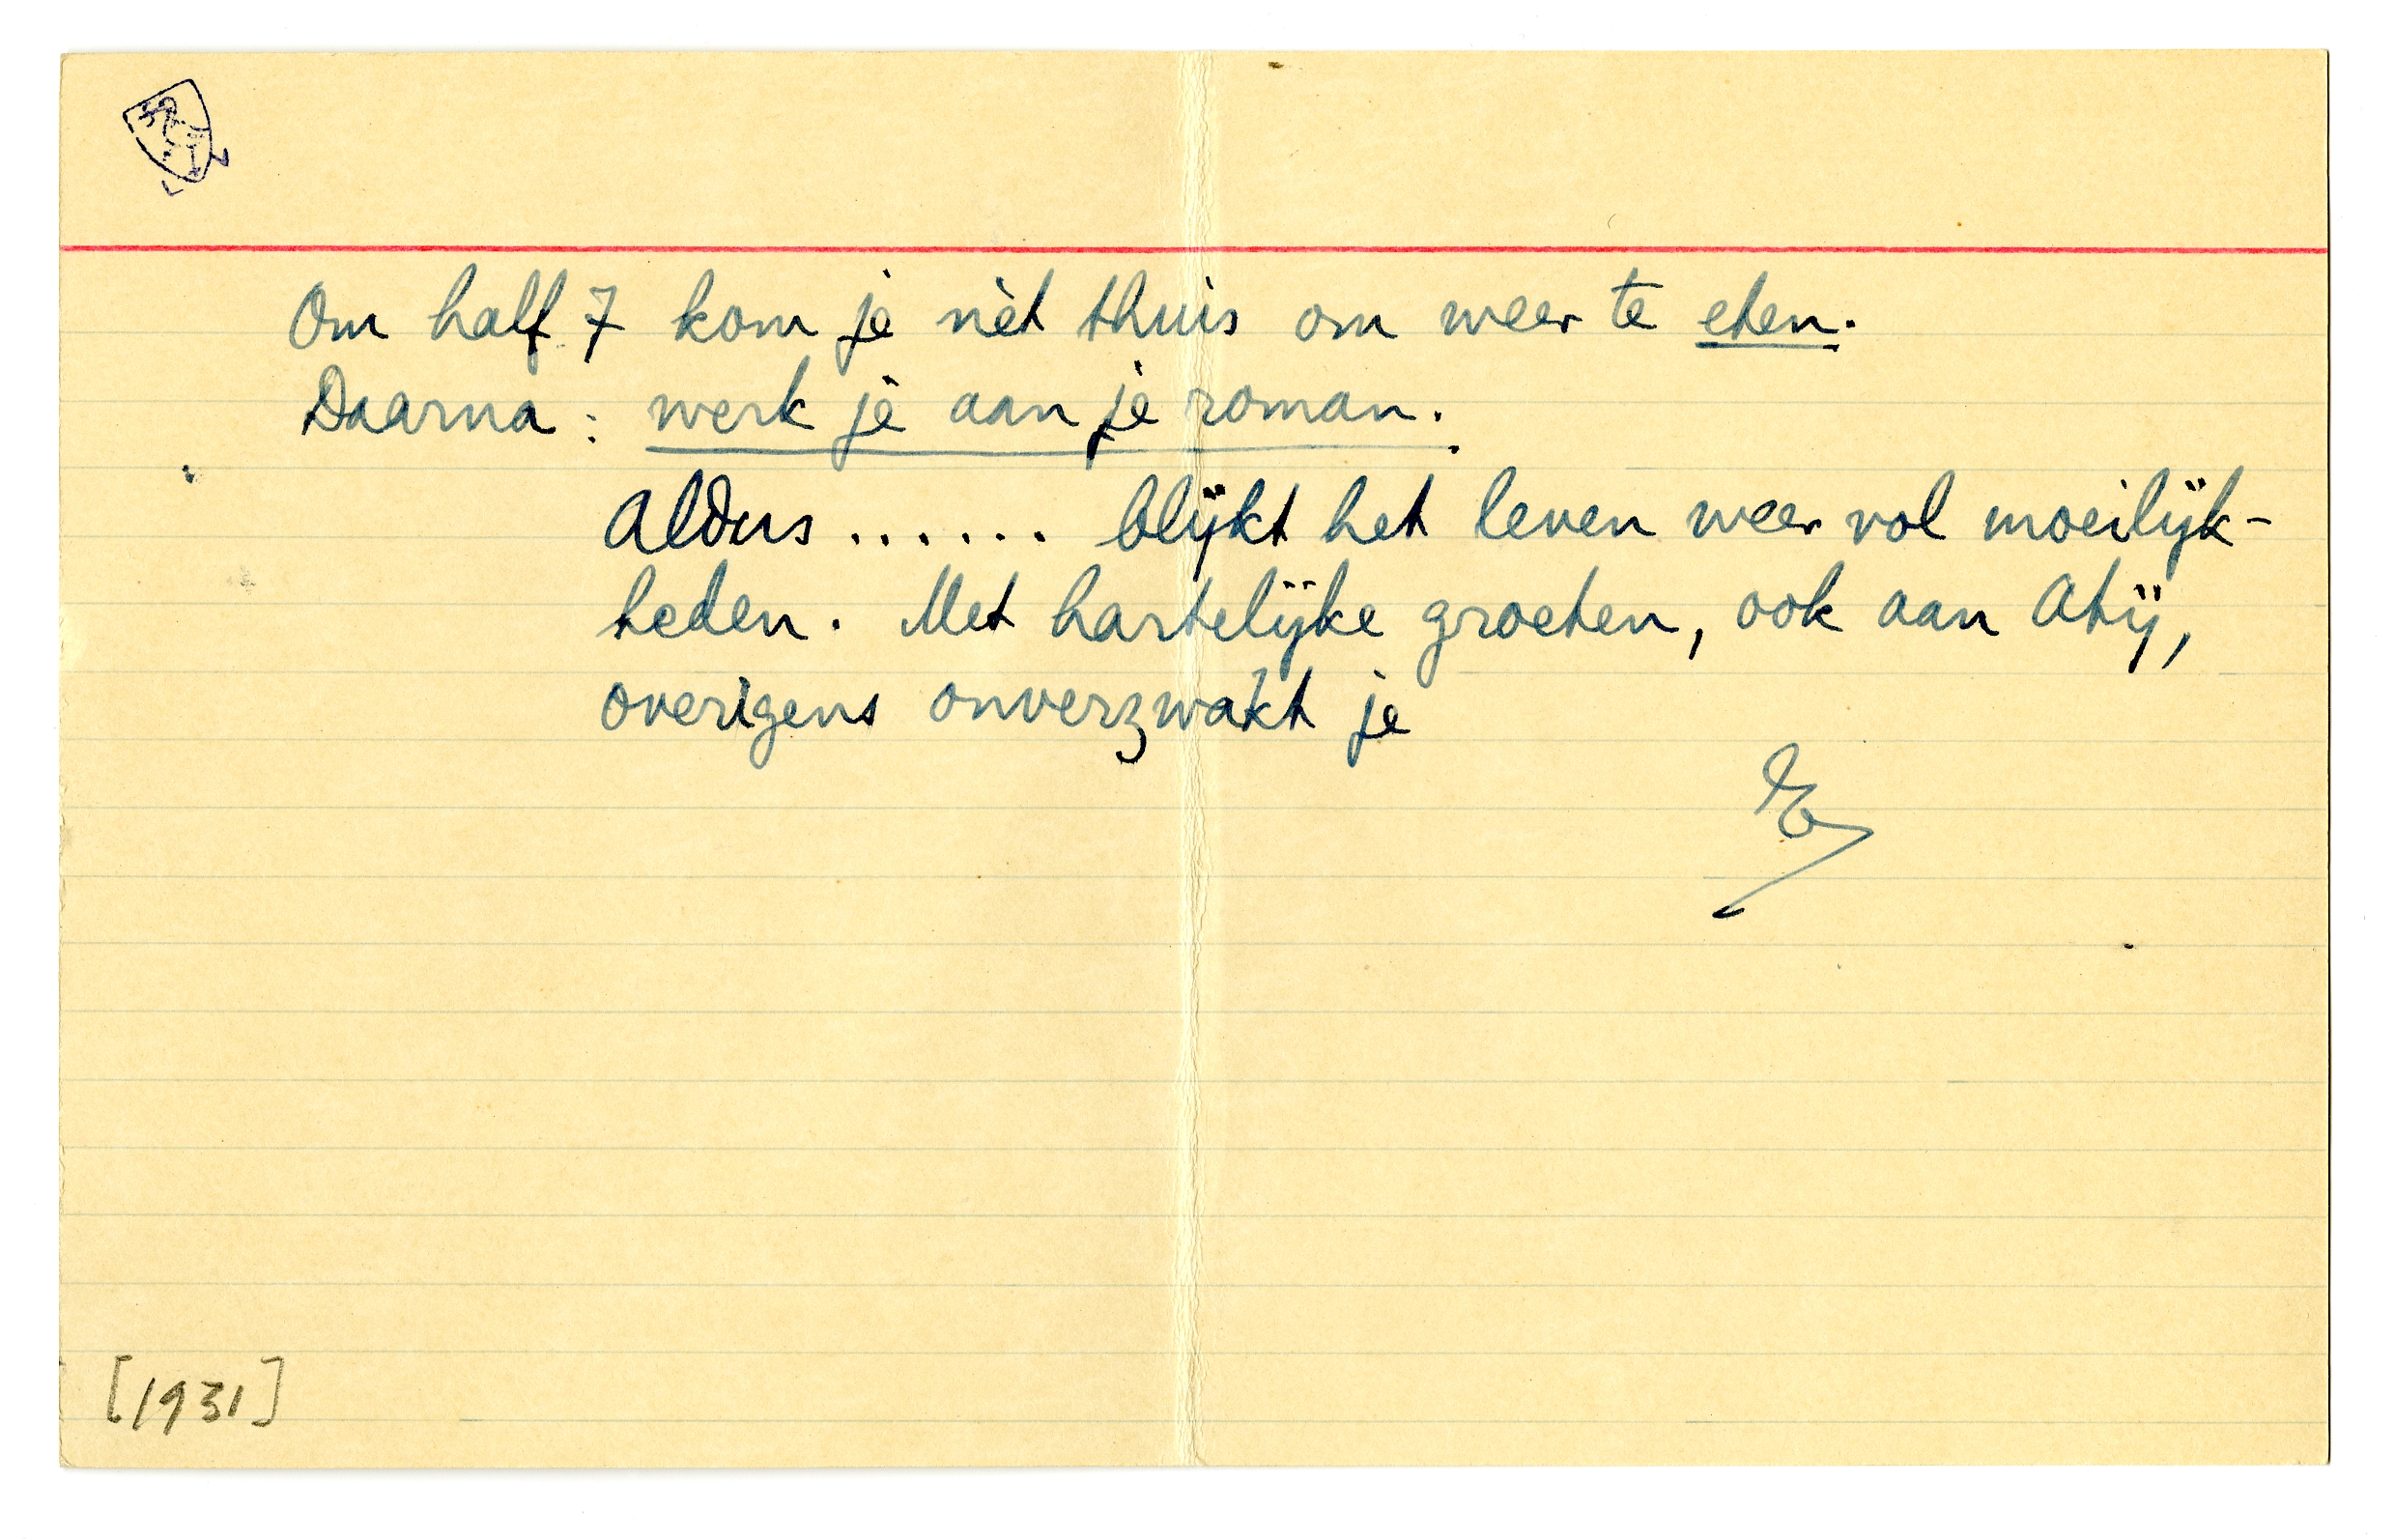 Om half 7 kom je nèt thuis om weer te eten.
Daarna: werk je aan je roman.
Aldus ...... blijkt het leven weer vol moeilijk-
heden. Met hartelijke groeten, ook aan Atij,
overigens onverzwakt je
E
[1931]